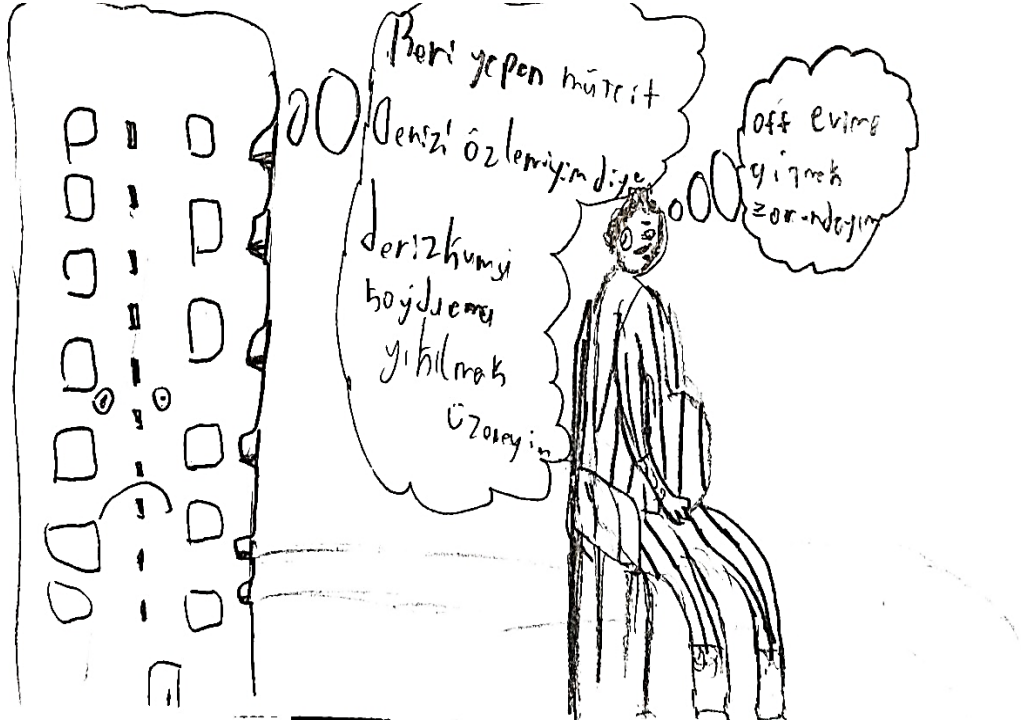 Beni yapan müteit
Denizi özlemiyim diye
deniz kumyi
koydu ama
yıkılmak
Üzereyim
off evime
girmek
zorundayım